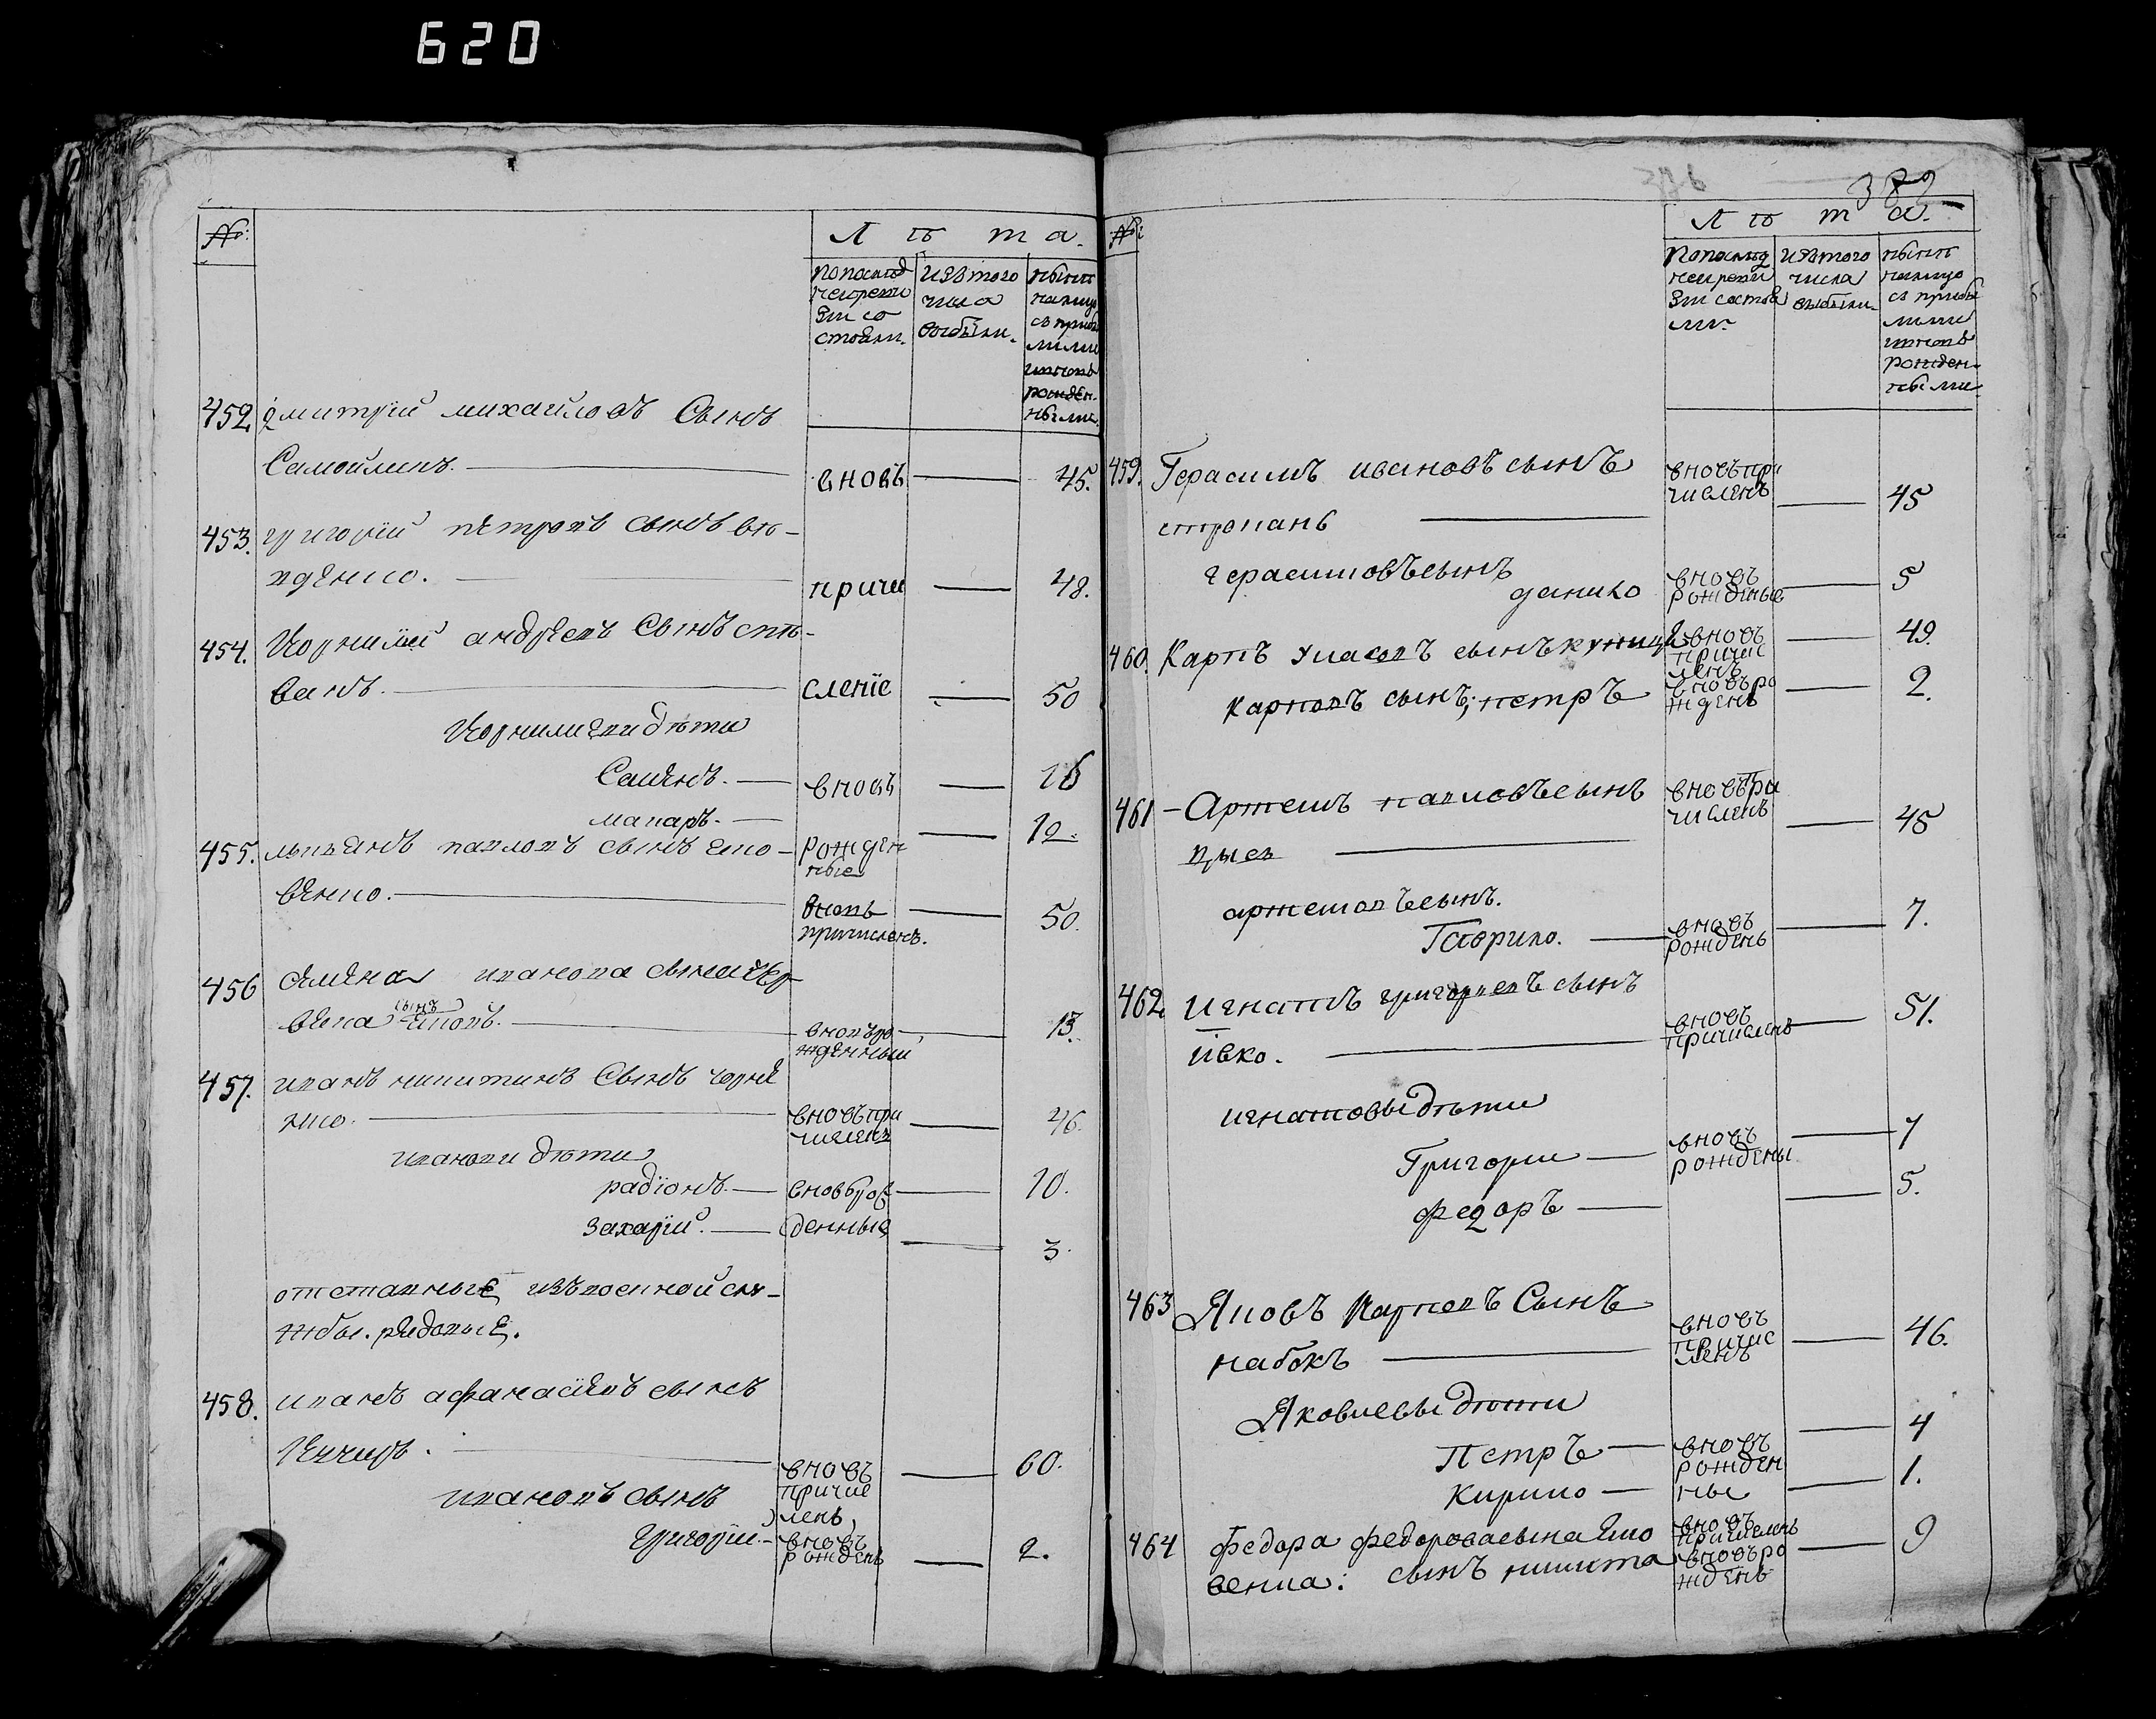 620
№:
Лѣта.
по послѣд
ней реви
зіи со
стояли.
изъ того
числа
выбыли.
нынѣ
налицо
съ прибы
лыми
и новъ
рожден-
ными.
452. Дмитрїй михайловъ Сынъ
Самойленъ.
вновъ
45.
453. григорїй петровъ сынъ вю-
нденко.
причи
48.
454. Корнилїй андреевъ Сынъ спѣ-
ванъ.
сленїе
50
Корнилиеви дѣти
Семенъ.
вновъ
16
макаръ.
12.
рожден
ные
455. павловъ сынъ
венко.
вновъ
причисленъ.
50.
456 Семена иванова сына
сынъ
вновъ ро
жденный
13.
457. иванъ никитинъ Сынъ черне
нко.
вновъ при
численъ
46.
иванови дѣти
радїонъ.
вновь рож
10.
захарїй.
денные
3.
отставные изъ военной слу-
жбы. рядовые.
458. иванъ афанасїевъ сынъ
60.
вновъ
причис
ленъ,
ивановъ сынъ
григорїи.
вновъ
рожденъ
2.
376
382
№:
Лѣта.
по послѣд
ней реви
зіи состоя
ли.
изъ того
числа
выбыли.
нынѣ
налицо
съ прибы
лыми
и новъ
рожден-
ными.
459. Герасимъ ивановъ сынъ
вновъ при
численъ
45
строканъ
герасимовъ сынъ
данило
вновъ
рожденые
5
460. Карпъ власовъ сынъ куница
вновъ
причис
ленъ
49.
карповъ сынъ; петръ
вновъ ро
жденъ
2.
461 - Артемъ павловъ сынъ
вновъ при
численъ
45
артемовъ сынъ.
Гаврило.
вновъ
рожденъ
7.
462. Игнатъ григориевъ сынъ
ивко.
вновъ
причисленъ
51.
игнатовы дѣти
Григории
вновъ
рождены
7
федоръ
5.
463 Яковъ Карповъ Сынъ
набокъ
вновъ
причис
ленъ
46.
Яковлевы дѣти
Петръ
вновъ
рожден
4
Кирило
ны
1.
464 Федора федорова сына
венка: сынъ никита
вновъ
причисленъ
вновъ ро
жденъ
9